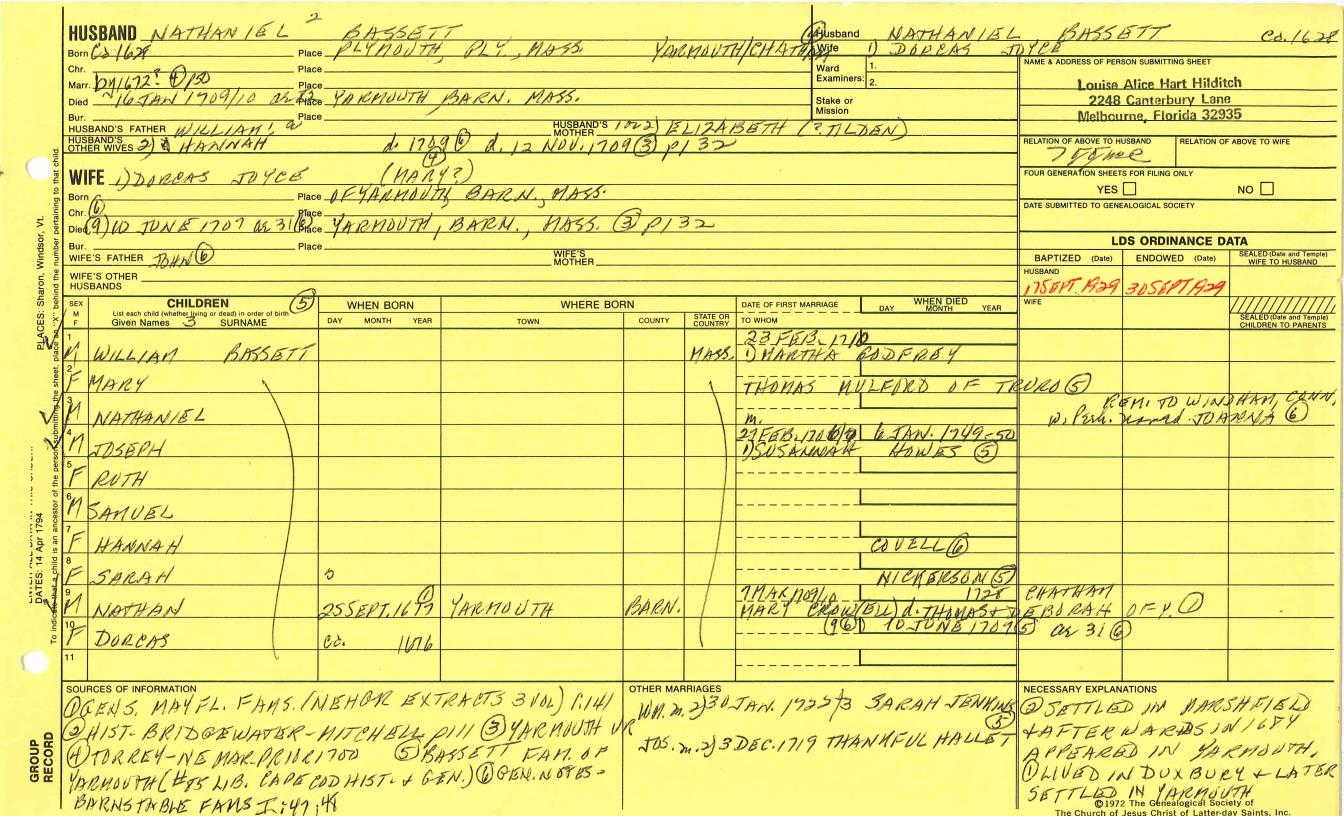 HUSBAND NATHANIEL 2 BASSETT
Born Ca 162 Place PLYMOUTH, PLY., MASS. YARMOUTH/CHATHAM
Chr. Place
Marr. by 1672? ④ p50 Place
Died 16 JAN 1709/10 Place YARMOUTH BARN. MASS.
Bur. Place
HUSBAND'S FATHER WILLIAM HUSBAND'S MOTHER 1 or 2) ELIZABETH (? TILDEN)
HUSBAND'S OTHER WIVES 2) HANNAH d. 1709 ⑥ d. 12 NOV. 1709 ③ p132
WIFE 1) DORCAS JOYCE (MARY?) ④
Born Place OF YARMOUTH, BARN., MASS.
Chr. ⑥ Place
Died (9) 10 JUNE 1707 or 31 ⑥ Place YARMOUTH, BARN., MASS. ③ p132
Bur. Place
WIFE'S FATHER JOHN ⑥ WIFE'S MOTHER
WIFE'S OTHER HUSBANDS
Husband NATHANIEL BASSETT Ca. 1628
Wife 1) DORCAS JOYCE
Ward Examiners: 1.
2.
Stake or Mission
NAME & ADDRESS OF PERSON SUBMITTING SHEET
Louise Alice Hart Hilditch
2248 Canterbury Lane
Melbourne, Florida 32935
RELATION OF ABOVE TO HUSBAND RELATION OF ABOVE TO WIFE
FOUR GENERATION SHEETS FOR FILING ONLY
YES NO
DATE SUBMITTED TO GENEALOGICAL SOCIETY
LDS ORDINANCE DATA
BAPTIZED (Date) ENDOWED (Date) SEALED (Date and Temple) WIFE TO HUSBAND
HUSBAND
17 SEPT. 1929 30 SEPT 1929
WIFE
SEALED (Date and Temple) CHILDREN TO PARENTS
SEX M F CHILDREN ⑤ WHEN BORN WHERE BORN DATE OF FIRST MARRIAGE WHEN DIED
List each child (whether living or dead) in order of birth DAY MONTH YEAR
Given Names 3 SURNAME DAY MONTH YEAR TOWN COUNTY STATE OR COUNTRY TO WHOM
1 23 FEB. 1710
M WILLIAM BASSETT MASS. 1) MARTHA GODFREY
2
F MARY THOMAS MULFORD OF TRURO ⑤
3 REM. TO WINDHAM, CONN,
M NATHANIEL m. w. Perh. named JOANNA ⑥
4 27 FEB. 170 6 JAN. 1749-50
M JOSEPH 1) SUSANNAH HOWES ⑤
5
F RUTH
6
M SAMUEL
7
F HANNAH COVELL ⑥
8
F SARAH NICKERSON ⑤
9 7 MAR 1709/10 1728 CHATHAM
M NATHAN 25 SEPT. 1677 ① YARMOUTH BARN. MARY CROW(ELL) d. THOMAS + DEBORAH OF Y. ①
10 (9⑥) 10 JUNE 1707 ⑤ or 31 ⑥
F DORCAS ca. 1676
11
SOURCES OF INFORMATION
① GENS. MAYFL. FAMS. (NEHGR EXTRACTS 3 VOL) I:141
② HIST. BRIDGEWATER - MITCHELL p111 ③ YARMOUTH VR
④ TORREY - NE MAR. PRIOR 1700 ⑤ BASSETT FAM. OF
YARMOUTH (#85 LIB. CAPE COD HIST. + GEN.) ⑥ GEN. NOTES -
BARNSTABLE FAMS I:47, 48
OTHER MARRIAGES
WM. m. 2) 30 JAN. 1722/3 SARAH JENKINS ⑤
JOS. m. 2) 3 DEC. 1719 THANKFUL HALLET
NECESSARY EXPLANATIONS
② SETTLED IN MARSHFIELD
+ AFTERWARDS IN 1684
APPEARED IN YARMOUTH,
① LIVED IN DUXBURY + LATER
SETTLED IN YARMOUTH
©1972 The Genealogical Society of
The Church of Jesus Christ of Latter-day Saints, Inc.
PLACES: Sharon, Windsor, Vt.
DATES: 14 Apr 1794
To indicate that a child is an ancestor of the person submitting the sheet, place an "X" behind the number pertaining to that child.
GROUP RECORD